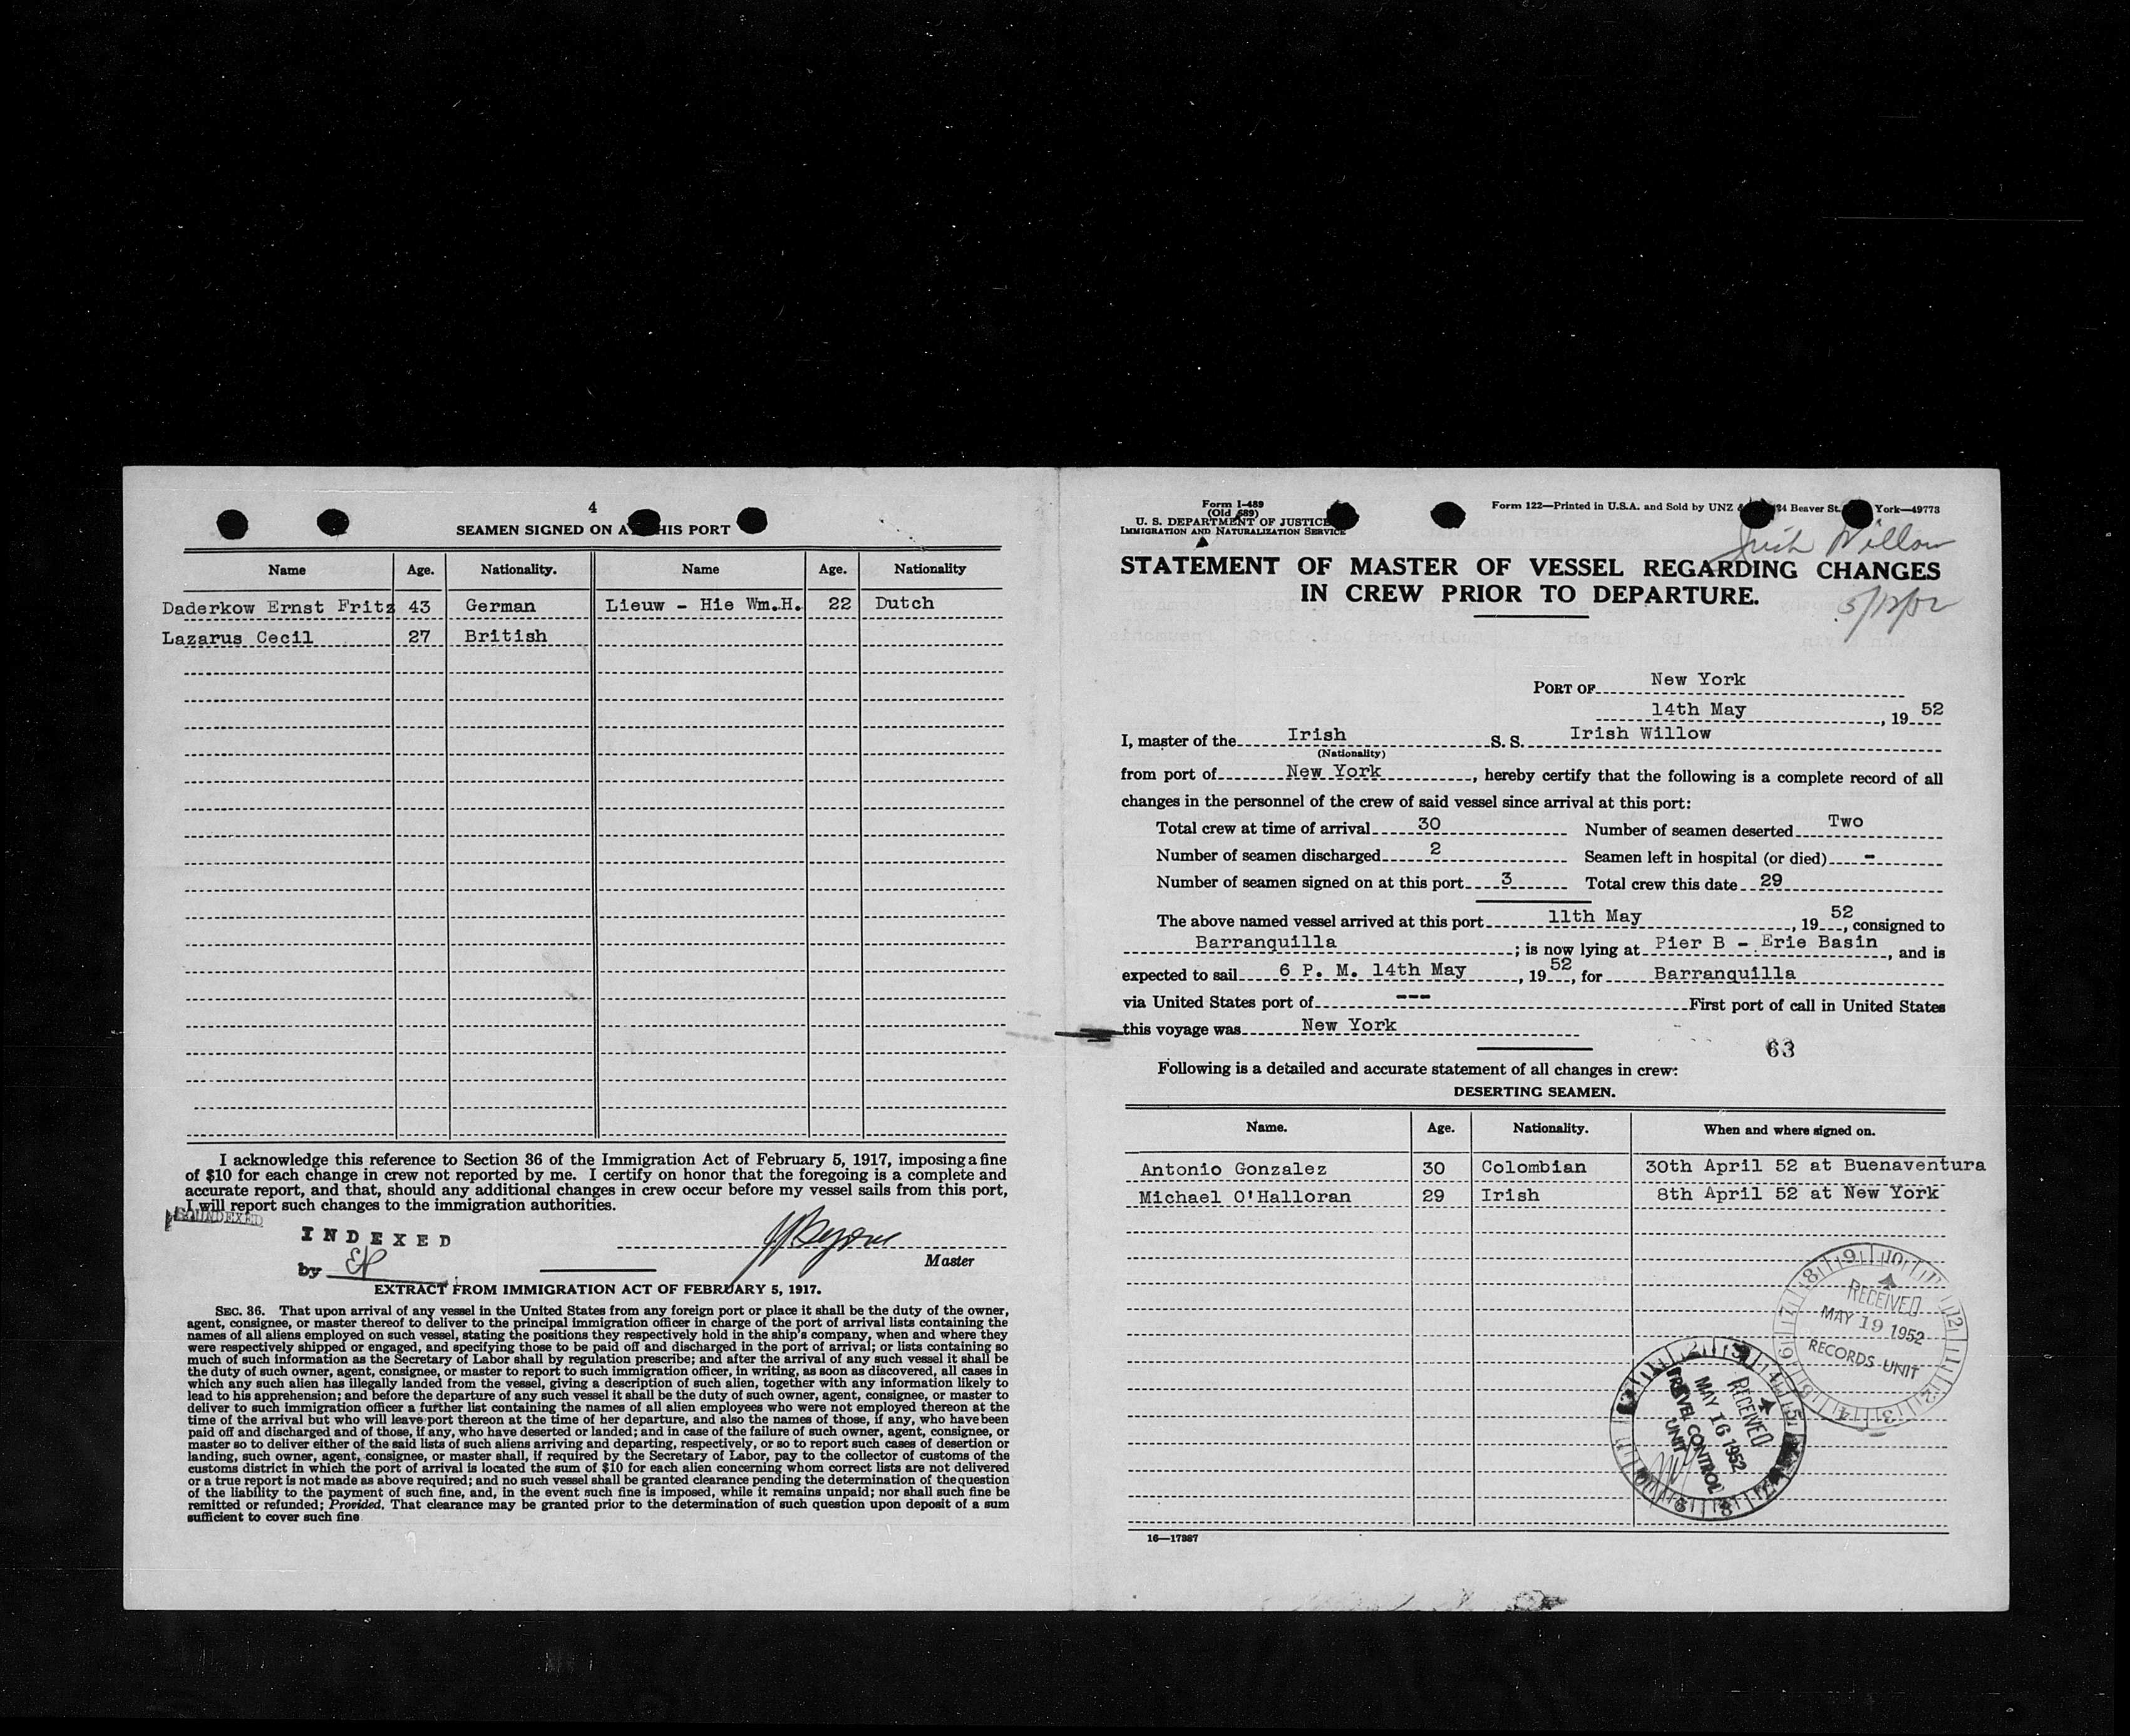 4
SEAMEN SIGNED ON AT THIS PORT
Name Age. Nationality. Name Age. Nationality
Daderkow Ernst Fritz 43 German Lieuw - Hie Wm.H. 22 Dutch
Lazarus Cecil 27 British
I acknowledge this reference to Section 36 of the Immigration Act of February 5, 1917, imposing a fine
of $10 for each change in crew not reported by me. I certify on honor that the foregoing is a complete and
accurate report, and that, should any additional changes in crew occur before my vessel sails from this port,
I will report such changes to the immigration authorities.
INDEXED
by
Master
EXTRACT FROM IMMIGRATION ACT OF FEBRUARY 5, 1917.
SEC. 36. That upon arrival of any vessel in the United States from any foreign port or place it shall be the duty of the owner,
agent, consignee, or master thereof to deliver to the principal immigration officer in charge of the port of arrival lists containing the
names of all aliens employed on such vessel, stating the positions they respectively hold in the ship's company, when and where they
were respectively shipped or engaged, and specifying those to be paid off and discharged in the port of arrival; or lists containing so
much of such information as the Secretary of Labor shall by regulation prescribe; and after the arrival of any such vessel it shall be
the duty of such owner, agent, consignee, or master to report to such immigration officer, in writing, as soon as discovered, all cases in
which any such alien has illegally landed from the vessel, giving a description of such alien, together with any information likely to
lead to his apprehension; and before the departure of any such vessel it shall be the duty of such owner, agent, consignee, or master to
deliver to such immigration officer a further list containing the names of all alien employees who were not employed thereon at the
time of the arrival but who will leave port thereon at the time of her departure, and also the names of those, if any, who have been
paid off and discharged and of those, if any, who have deserted or landed; and in case of the failure of such owner, agent, consignee, or
master so to deliver either of the said lists of such aliens arriving and departing, respectively, or so to report such cases of desertion or
landing, such owner, agent, consignee, or master shall, if required by the Secretary of Labor, pay to the collector of customs of the
customs district in which the port of arrival is located the sum of $10 for each alien concerning whom correct lists are not delivered
or a true report is not made as above required; and no such vessel shall be granted clearance pending the determination of the question
of the liability to the payment of such fine, and, in the event such fine is imposed, while it remains unpaid; nor shall such fine be
remitted or refunded; Provided, That clearance may be granted prior to the determination of such question upon deposit of a sum
sufficient to cover such fine
Form I-489
(Old 689)
U. S. DEPARTMENT OF JUSTICE
IMMIGRATION AND NATURALIZATION SERVICE
Form 122—Printed in U.S.A. and Sold by UNZ & 24 Beaver St. York—49773
Irish Willow
STATEMENT OF MASTER OF VESSEL REGARDING CHANGES
IN CREW PRIOR TO DEPARTURE.
5/12/52
PORT OF New York
14th May, 1952
I, master of the Irish S. S. Irish Willow
(Nationality)
from port of New York, hereby certify that the following is a complete record of all
changes in the personnel of the crew of said vessel since arrival at this port:
Total crew at time of arrival 30 Number of seamen deserted Two
Number of seamen discharged 2 Seamen left in hospital (or died) -
Number of seamen signed on at this port 3 Total crew this date 29
The above named vessel arrived at this port 11th May, 1952, consigned to
Barranquilla; is now lying at Pier B - Erie Basin, and is
expected to sail 6 P. M. 14th May, 1952, for Barranquilla
via United States port of --- First port of call in United States
this voyage was New York
63
Following is a detailed and accurate statement of all changes in crew:
DESERTING SEAMEN.
Name. Age. Nationality. When and where signed on.
Antonio Gonzalez 30 Colombian 30th April 52 at Buenaventura
Michael O'Halloran 29 Irish 8th April 52 at New York
RECEIVED
MAY 19 1952
RECORDS UNIT
RECEIVED
MAY 16 1952
TRAVEL CONTROL
UNIT
16—17387